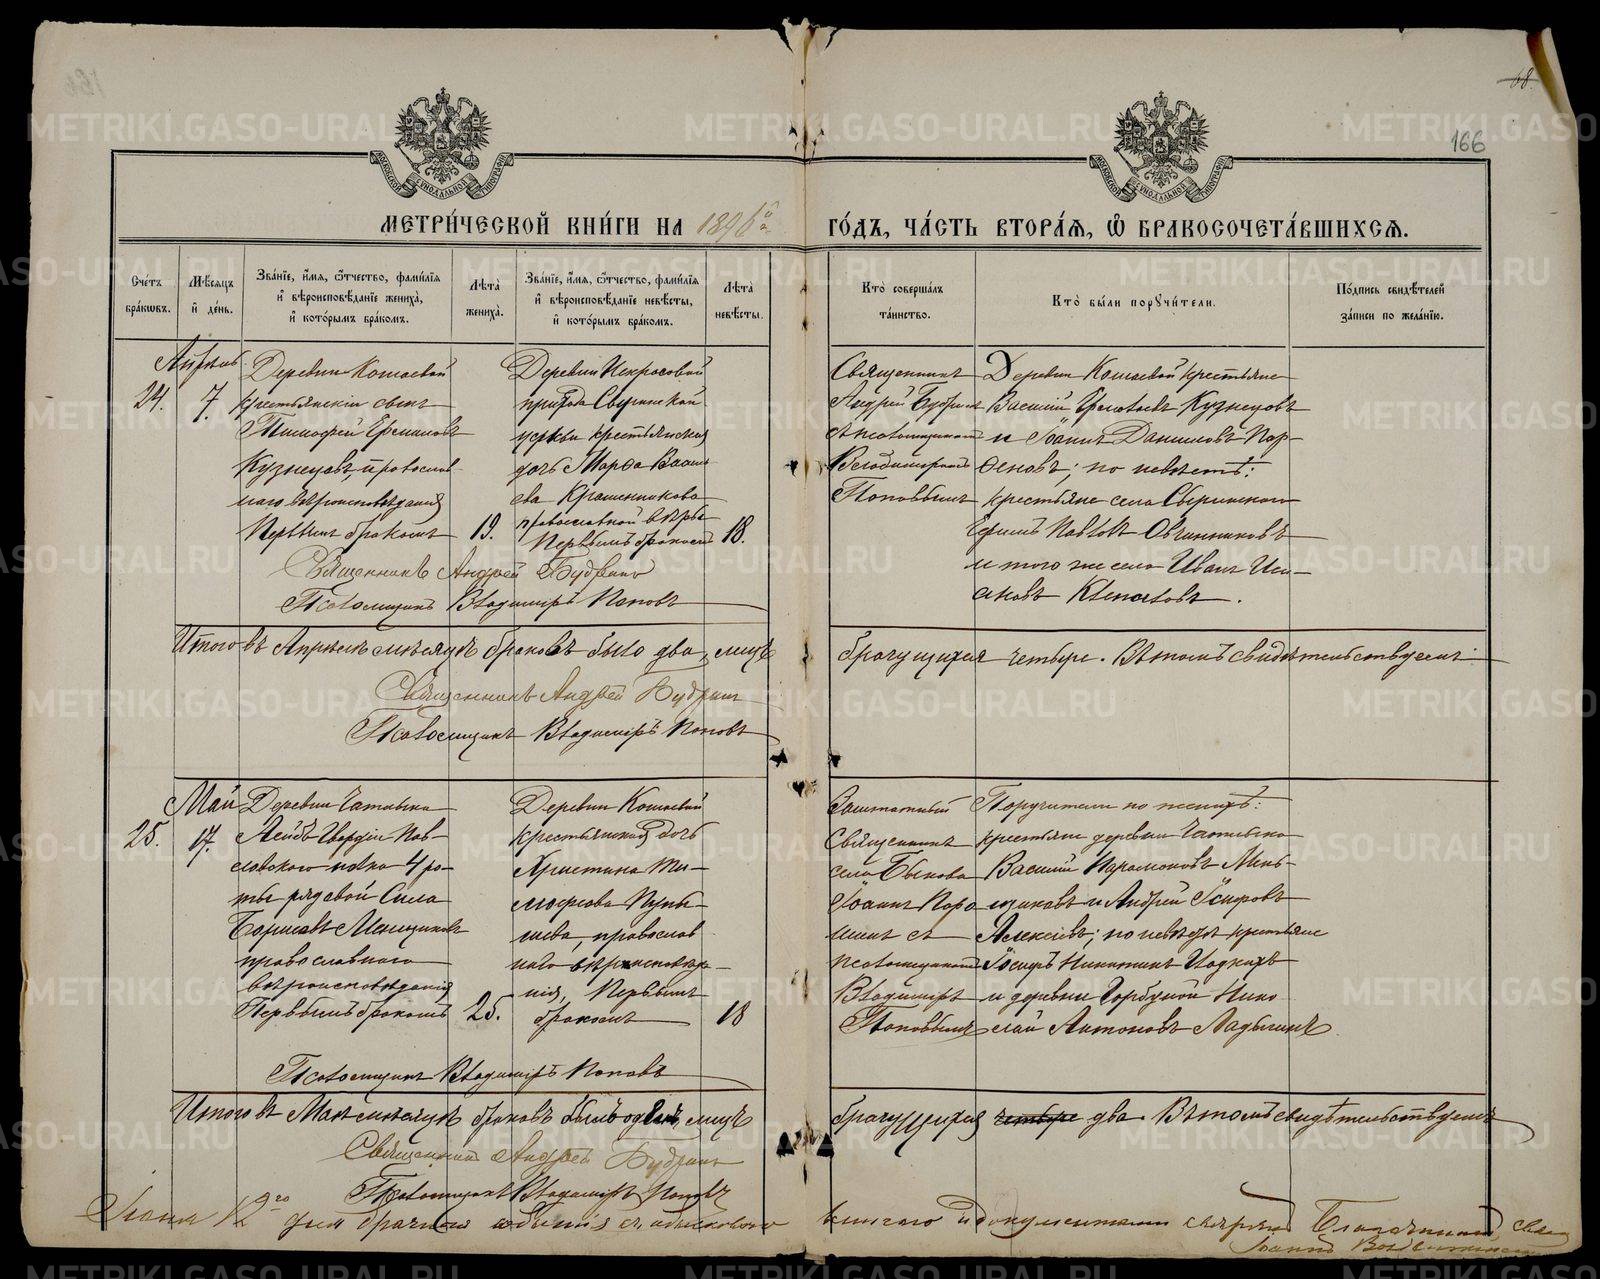 68.
166
МОСКОВСКОЙ СѴНОДАЛЬНОЙ ТИПОГРАФІИ
МОСКОВСКОЙ СѴНОДАЛЬНОЙ ТИПОГРАФІИ
МЕТРИ́ЧЕСКОЙ КНИ́ГИ НА 1896й
ГО́ДЪ, ЧА́СТЬ ВТОРА́Я, Ѽ БРАКОСОЧЕТА́ВШИХСЯ.
Сче́тъ
бра́ковъ.
Мѣ́сяцъ
и҆ де́нь.
Зва́нїе, и҆́мя, ѻ҆́тчество, фами́лїя
и҆ вѣроисповѣ́данїе жениха̀,
и҆ кото́рымъ бра́комъ.
Лѣ́та
жениха̀.
Зва́нїе, и҆́мя, ѻ҆́тчество, фами́лїя
и҆ вѣроисповѣ́данїе невѣ́сты,
и҆ кото́рымъ бра́комъ.
Лѣ́та
невѣ́сты.
Кто̀ соверша́лъ
та́инство.
Кто̀ бы́ли порꙋчи́тели.
По́дпись свидѣ́телей
за́писи по жела́нїю.
Апрѣль
24.
7.
Деревни Кошаевой
крестьянскій сынъ
Тимофей Ермиловъ
Кузнецовъ, православ-
наго вѣроисповѣданія
Первымъ бракомъ
19.
Деревни Некрасовой
прихода Свиринской
церкви крестьянская
дочь Марѳа Василь-
ева Крашенникова
православной вѣры
Первымъ бракомъ
18.
Священникъ
Андрей Будринъ
съ псаломщикомъ
Владиміромъ
Поповымъ
Деревни Кошаевой крестьяне
Василій Кузнецовъ
и Іоаннъ Даниловъ Пор-
; по невѣстѣ:
крестьяне села
Павловъ Овчинниковъ
и того же села Иванъ Иса-
аковъ
Священникъ Андрей Будринъ
Псаломщикъ Владиміръ Поповъ
Итого въ Апрѣлѣ мѣсяцѣ браковъ было два, лицъ
брачущихся четыре. Въ томъ свидѣтельствуемъ
Священникъ Андрей Будринъ
Псаломщикъ Владиміръ Поповъ
Май
25.
17.
Деревни Чатлыка
Лейбъ Гвардіи Пав-
ловскаго полка 4 ро-
ты рядовой Сила
Борисовъ Меньщиковъ
православнаго
вѣроисповѣданія
Первымъ бракомъ
25.
Деревни Кошаевой
крестьянская дочь
Христина Ти-
моѳеева
православ-
наго вѣроисповѣда-
нія, Первымъ
бракомъ
18
Заштатный
Священникъ
села Быкова
Іоаннъ
съ
псаломщикомъ
Владиміромъ
Поповымъ
Поручители по женихѣ:
крестьяне деревни Чатлыка
Василій Парамоновъ Мень-
щиковъ и Андрей
Алексѣевъ; по невѣстѣ крестьяне
Никитинъ
и деревни Горбуной Нико-
лай Антоновъ Ладыгинъ
Псаломщикъ Владиміръ Поповъ
Итого въ Маѣ мѣсяцѣ браковъ былъ одинъ, лицъ
брачущихся четыре два. Въ томъ свидѣтельствуемъ
Священникъ Андрей Будринъ
Псаломщикъ Владиміръ Поповъ
Іюня 12го дня
документами Благочинный
METRIKI.GASO-URAL.RU